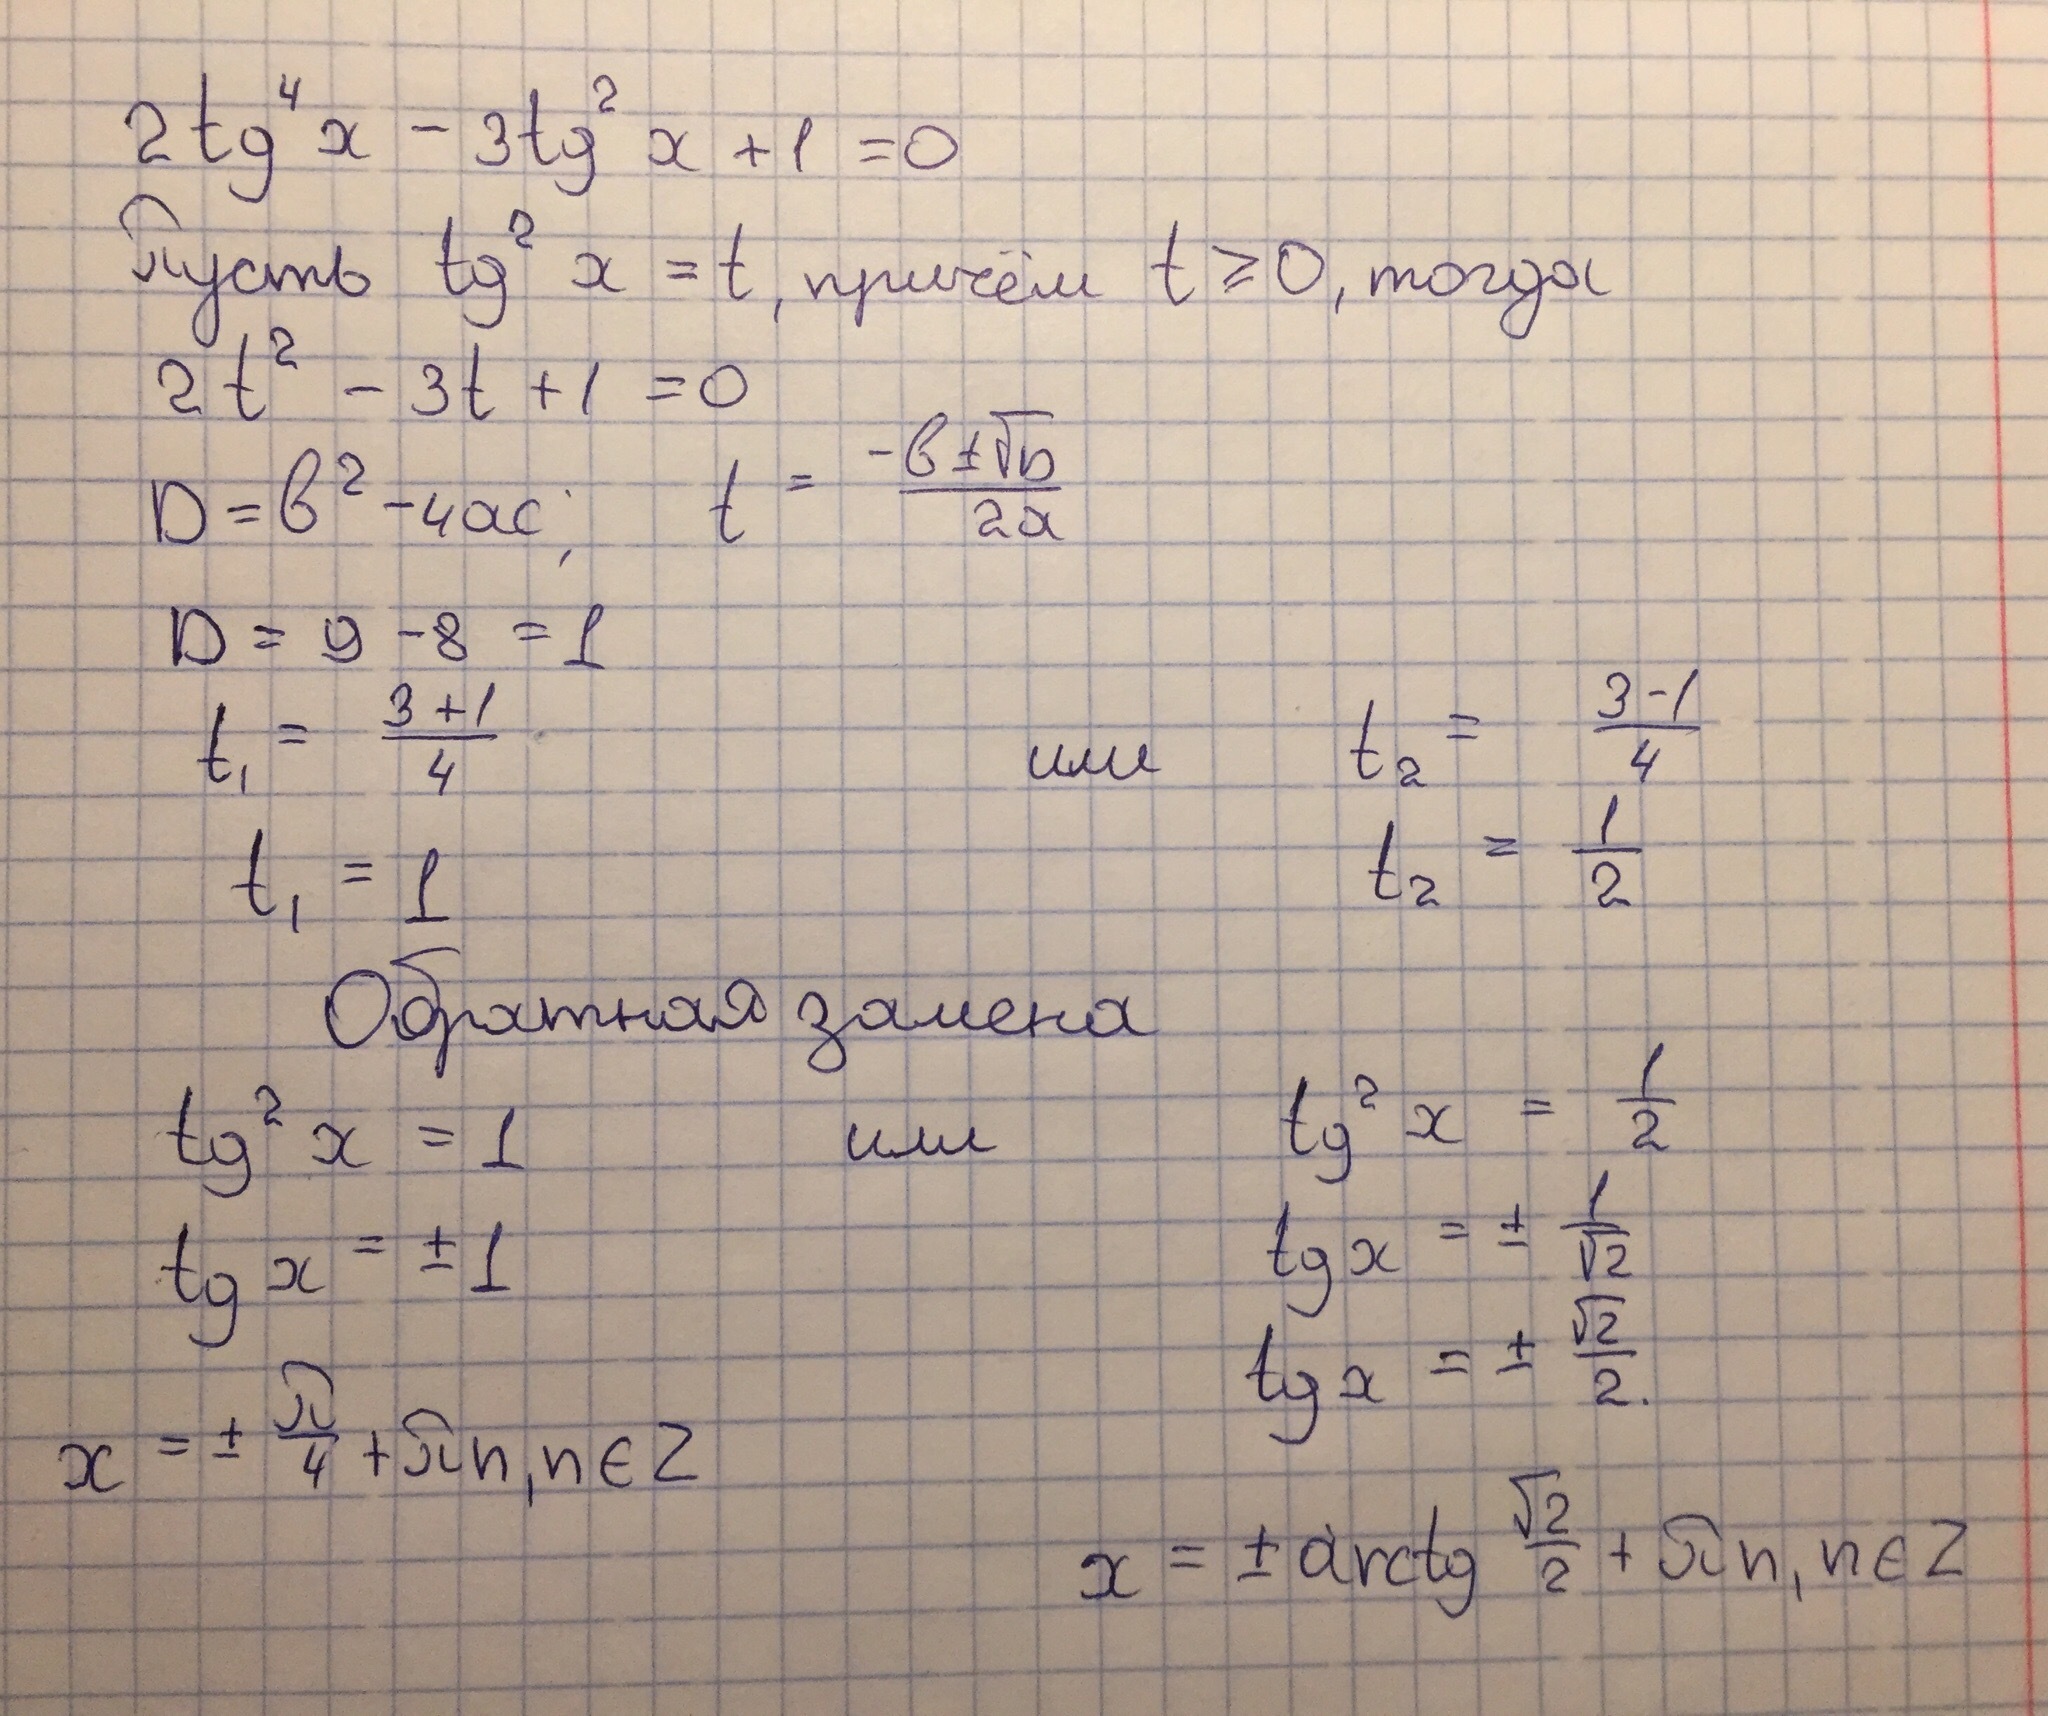 2tg⁴x - 3tg²x + 1 = 0
Пусть tg²x = t, причём t ≥ 0, тогда
2t² - 3t + 1 = 0
D = b² - 4ac; t = (-b ± √D)/2a
D = 9 - 8 = 1
t₁ = (3+1)/4 или t₂ = (3-1)/4
t₁ = 1 t₂ = 1/2
Обратная замена
tg²x = 1 или tg²x = 1/2
tg x = ± 1 tg x = ± 1/√2
tg x = ± √2/2.
x = ± π/4 + πn, n ∈ Z
x = ± arctg √2/2 + πn, n ∈ Z